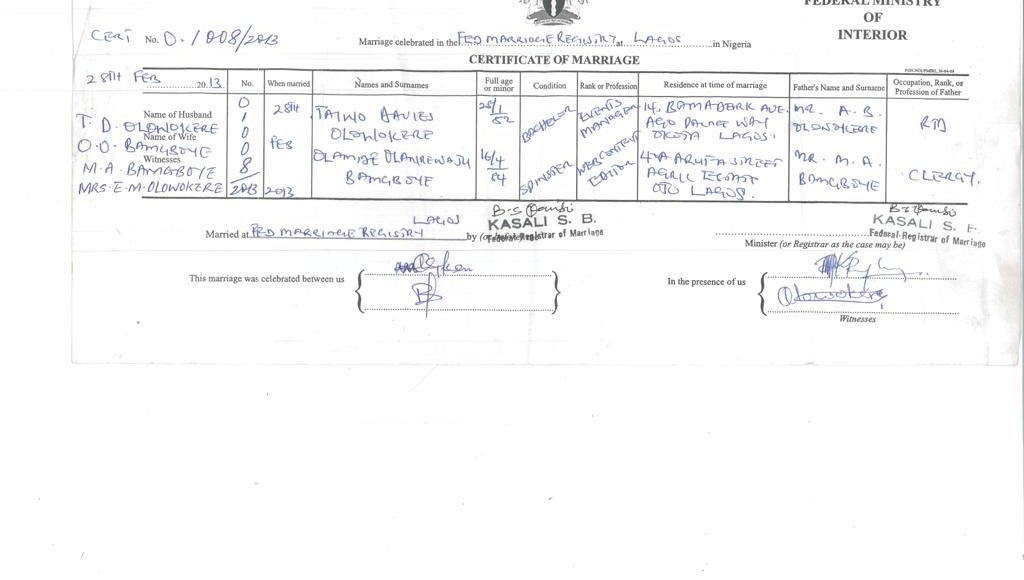 FEDERAL MINISTRY
OF
INTERIOR
CERT No. 0/008/2013
Marriage celebrated in the FED MARRIAGE REGISTRY at LAGOS in Nigeria
CERTIFICATE OF MARRIAGE
28TH FEB 2013
No.
When married
Names and Surnames
Full age or minor
Condition
Rank or Profession
Residence at time of marriage
Father's Name and Surname
Occupation, Rank, or Profession of Father
Name of Husband
T. D. OLOWOKERE
Name of Wife
O.O. BAMGBOYE
Witnesses
M.A. BAMGBOYE
MRS. E. M. OLOWOKERE
01008/2013
28TH
FEB
2013
TAIWO DAVIES
OLOWOKERE
28/1
82
BACHELOR
EVENTS MANAGER
14, BAMADERK AVE.
AGO PALACE WAY
OKOTA LAGOS.
MR. A. B.
OLOWOKERE
RTD
OLAMIDE OLANREWAJU
BAMGBOYE
16/4
84
SPINSTER
WEB CONTENT EDITOR
STREET
AGRIC
OJO LAGOS.
MR. M. A.
BAMGBOYE
CLERGY.
Married at FED MARRIAGE REGISTRY LAGOS by (or before)
KASALI S. B.
Federal Registrar of Marriage
KASALI S.
Federal Registrar of Marriage
Minister (or Registrar as the case may be)
This marriage was celebrated between us
In the presence of us
Olowokere
Witnesses